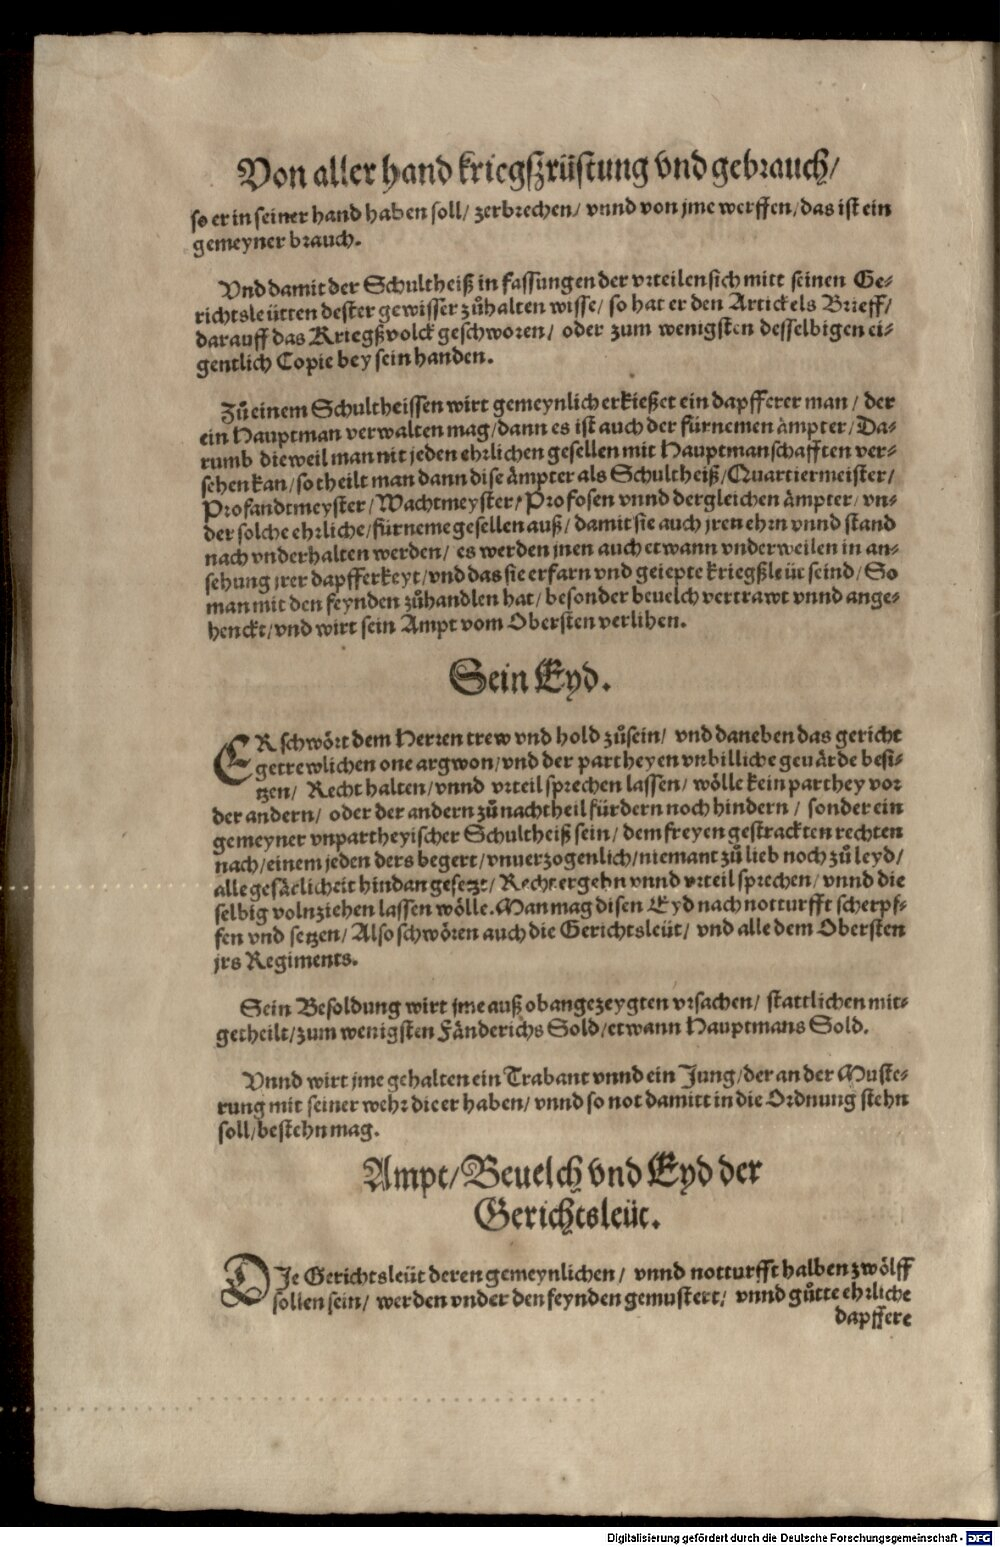 Von aller hand kriegſzrüſtung vnd gebrauch/
ſo er in ſeiner hand haben ſoll/ zerbrechen/ vnnd von jme werffen/ das iſt ein
gemeyner brauch.
Vnd damit der Schultheiß in faſſungen der vrteilen ſich mitt ſeinen Ge-
richtsleütten deſter gewiſſer zůhalten wiſſe/ ſo hat er den Artickels Brieff/
darauff das Kriegßvolck geſchworen/ oder zum wenigſten deſſelbigen ei-
gentlich Copie bey ſein handen.
Zů einem Schultheiſſen wirt gemeynlich erkießet ein dapfferer man/ der
ein Hauptman verwalten mag/ dann es iſt auch der fürnemen ämpter/ Da-
rumb dieweil man nit jeden ehrlichen geſellen mit Hauptmanſchafften ver-
ſehen kan/ ſo theilt man dann diſe ämpter als Schultheiß/ Quartiermeiſter/
Profandtmeyſter/ Wachtmeyſter/ Profoſen vnnd dergleichen ämpter/ vn-
der ſolche ehrliche/ fürneme geſellen auß/ damit ſie auch jren ehrn vnnd ſtand
nach vnderhalten werden/ es werden jnen auch etwann vnderweilen in an-
ſehung jrer dapfferkeyt/ vnd das ſie erfarn vnd geiepte kriegßleüt ſeind/ So
man mit den feynden zůhandlen hat/ beſonder beuelch vertrawt vnnd ange-
henckt/ vnd wirt ſein Ampt vom Oberſten verlihen.
Sein Eyd.
ER ſchwört dem Herren trew vnd hold zůſein/ vnd daneben das gericht
getrewlichen one argwon/ vnd der partheyen vnbilliche geuärde beſi-
tzen/ Recht halten/ vnnd vrteil ſprechen laſſen/ wölle kein parthey vor
der andern/ oder der andern zů nachtheil fürdern noch hindern/ ſonder ein
gemeyner vnpartheyiſcher Schultheiß ſein/ dem freyen geſtrackten rechten
nach/ einem jeden ders begert/ vnuerzogenlich/ niemant zů lieb noch zů leyd/
alle geſärlicheit hindan geſetzt/ Recht ergehn vnnd vrteil ſprechen/ vnnd die
ſelbig volnziehen laſſen wölle. Man mag diſen Eyd nach notturfft ſcherpf-
fen vnd ſetzen/ Alſo ſchwören auch die Gerichtsleüt/ vnd alle dem Oberſten
jrs Regiments.
Sein Beſoldung wirt jme auß obangezeygten vrſachen/ ſtattlichen mit-
getheilt/ zum wenigſten Fänderichs Sold/ etwann Hauptmans Sold.
Vnnd wirt jme gehalten ein Trabant vnnd ein Jung/ der an der Muſte-
rung mit ſeiner wehr die er haben/ vnnd ſo not damitt in die Ordnung ſtehn
ſoll/ beſtehn mag.
Ampt/ Beuelch vnd Eyd der
Gerichtsleüt.
DIe Gerichtsleüt deren gemeynlichen/ vnnd notturfft halben zwölff
ſollen ſein/ werden vnder den feynden gemuſtert/ vnnd gůtte ehrliche
dapffere
Digitalisierung gefördert durch die Deutsche Forschungsgemeinschaft - DFG